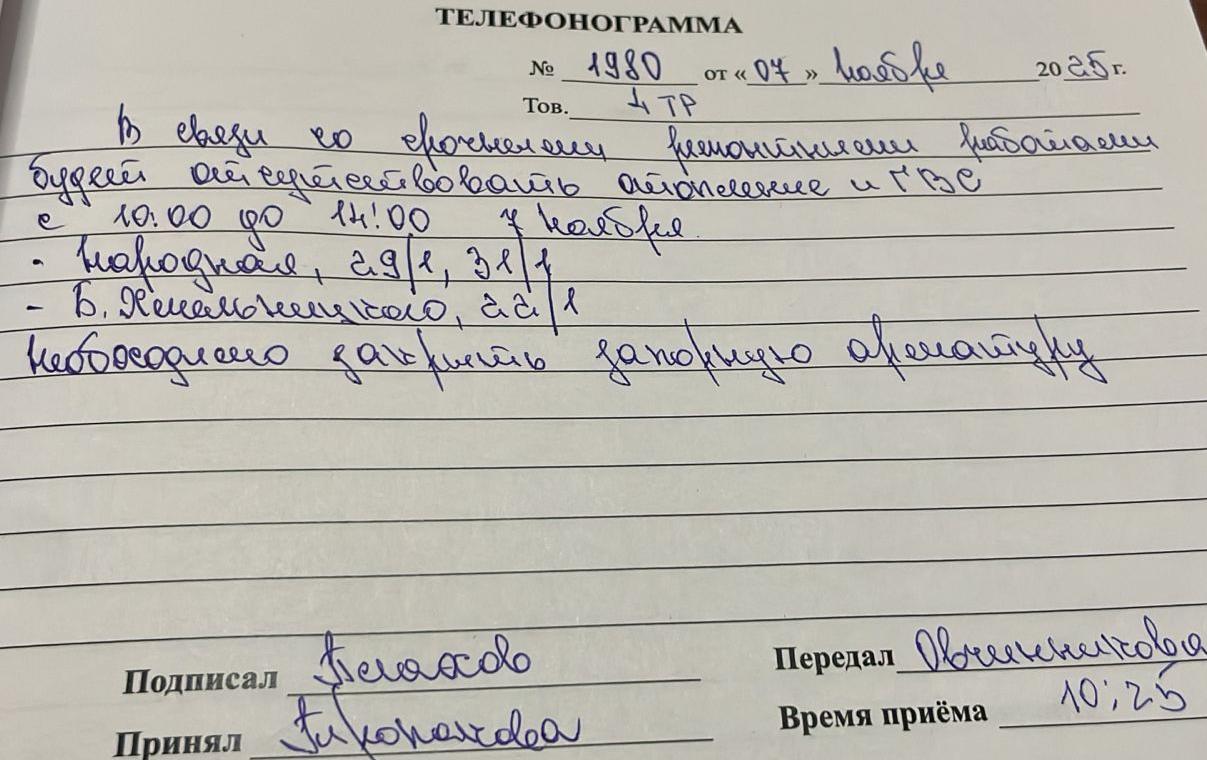 ТЕЛЕФОНОГРАММА
№ 1980 от «07» ноября 2025 г.
Тов. 4 ТР
В связи со срочными ремонтными работами
будет отсутствовать отопление и ГВС
с 10:00 до 14:00 7 ноября.
- Народная, 29/1, 31/1
- Б. Хмельницкого, 22/1
Необходимо закрыть запорную арматуру
Подписал
Передал Овчинникова
Принял
Время приёма 10:25